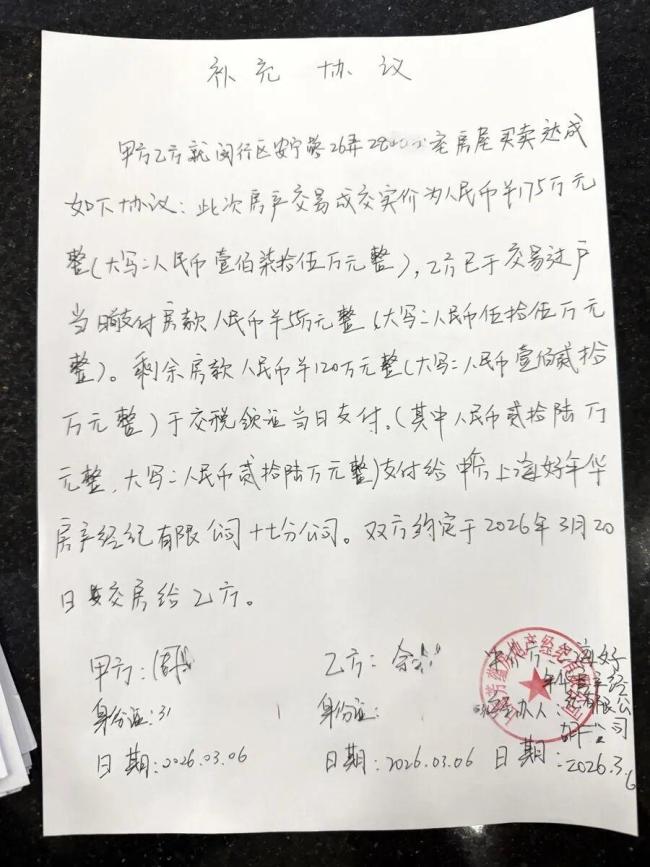 补充协议
甲方乙方就闵行区安宁路26弄29 室房屋买卖达成
如下协议：此次房产交易成交实价为人民币￥175万元
整（大写：人民币壹佰柒拾伍万元整），乙方已于交易过户
当日支付房款人民币￥55万元整（大写：人民币伍拾伍万元
整）。剩余房款人民币￥120万元整（大写：人民币壹佰贰拾
万元整）于交税领证当日支付。（其中人民币贰拾陆万
元整，大写：人民币贰拾陆万元整）支付给中介上海好年华
房产经纪有限公司十七分公司。双方约定于2026年3月20
日 交房给乙方。
甲方：周
身份证：31
日期：2026.03.06
乙方：余
身份证：
日期：2026.03.06
中介方：上海好
年华房产经
纪有限公
经办人：
司
日期：
2026.3.6
地产经纪有限